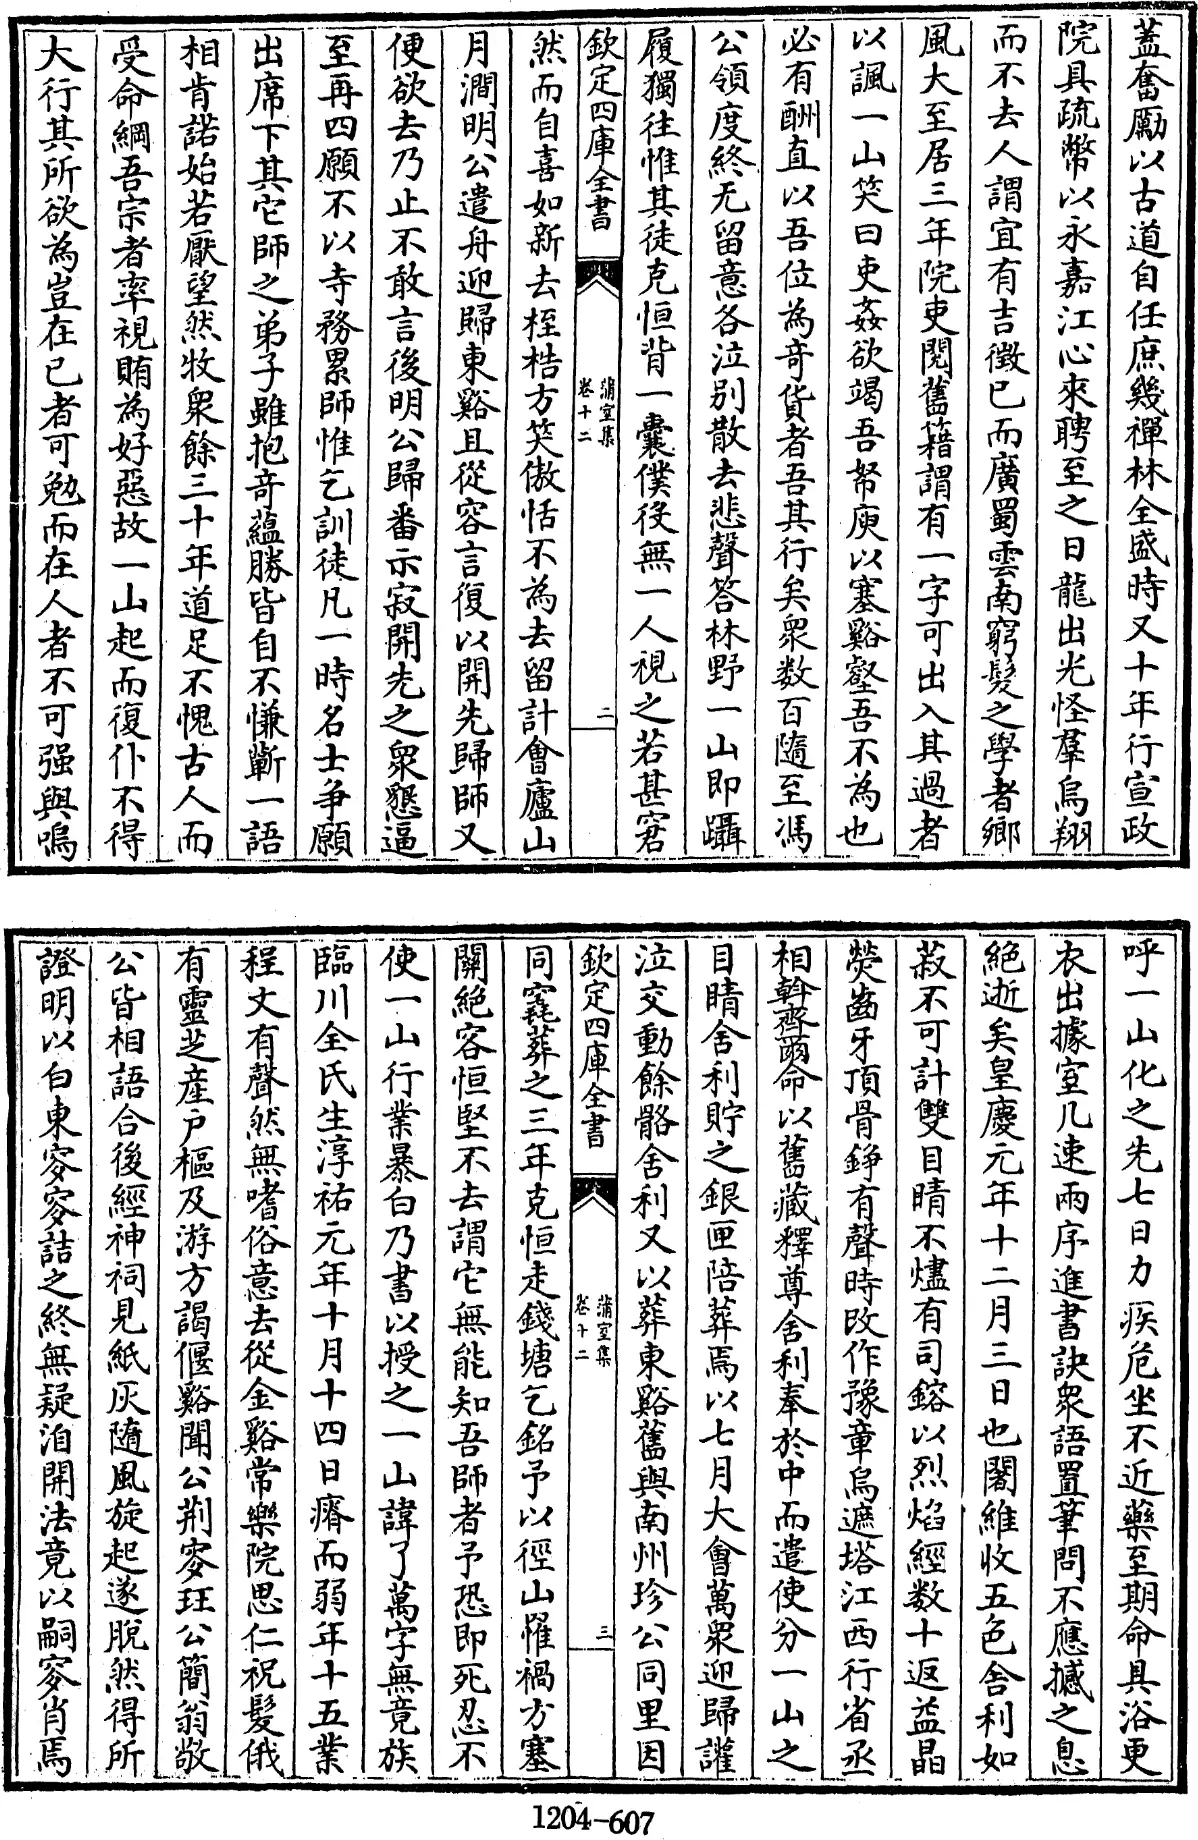 蓋奮勵以古道自任庶幾禪林全盛時又十年行宣政
院具疏幣以永嘉江心來聘至之日龍出光怪羣鳥翔
而不去人謂宜有吉徵已而廣蜀雲南窮髮之學者鄉
風大至居三年院吏閱舊籍謂有一字可出入其過者
以諷一山笑曰吏姦欲竭吾帑庾以塞谿壑吾不為也
必有酬直以吾位為竒貨者吾其行矣衆数百隨至馮
公領度終无留意各泣别散去悲聲答林野一山即躡
履獨往惟其徒克恒背一囊僕役無一人視之若甚窘
欽定四庫全書
蒲室集
卷十二
二
然而自喜如新去桎梏方笑傲恬不為去留計會廬山
月澗明公遣舟迎歸東谿且從容言復以開先歸師又
便欲去乃止不敢言後明公歸番示寂開先之衆懇逼
至再四願不以寺務累師惟乞訓徒凡一時名士争願
出席下其它師之弟子雖抱竒蘊勝皆自不慊蘄一語
相肯諾始若厭望然牧衆餘三十年道足不愧古人而
受命綱吾宗者率視賄為好惡故一山起而復仆不得
大行其所欲為豈在已者可勉而在人者不可强與嗚
呼一山化之先七日力疾危坐不近藥至期命具浴更
衣出據室几速兩序進書訣衆語置筆問不應撼之息
絶逝矣皇慶元年十二月三日也闍維收五色舍利如
菽不可計雙目睛不燼有司鎔以烈焰經数十返益晶
熒齒牙頂骨錚有聲時改作豫章烏遮塔江西行省丞
相斡齊爾命以舊藏釋尊舍利奉於中而遣使分一山之
目睛舍利貯之銀匣陪葬焉以七月大會萬衆迎歸讙
泣交動餘骼舍利又以葬東谿舊與南州珍公同里因
欽定四庫全書
蒲室集
卷十二
三
同窀葬之三年克恒走錢塘乞銘予以徑山罹禍方塞
關絶客恒堅不去謂它無能知吾師者予恐即死忍不
使一山行業暴白乃書以授之一山諱了萬字無竟族
臨川全氏生淳祐元年十月十四日瘠而弱年十五業
程文有聲然無嗜俗意去從金谿常樂院思仁祝髮俄
有靈芝産户樞及游方謁偃谿聞公荆叜珏公簡翁敬
公皆相語合後經神祠見紙灰隨風旋起遂脫然得所
證明以白東叜叜詰之終無疑洎開法竟以嗣叜肖焉
1204-607